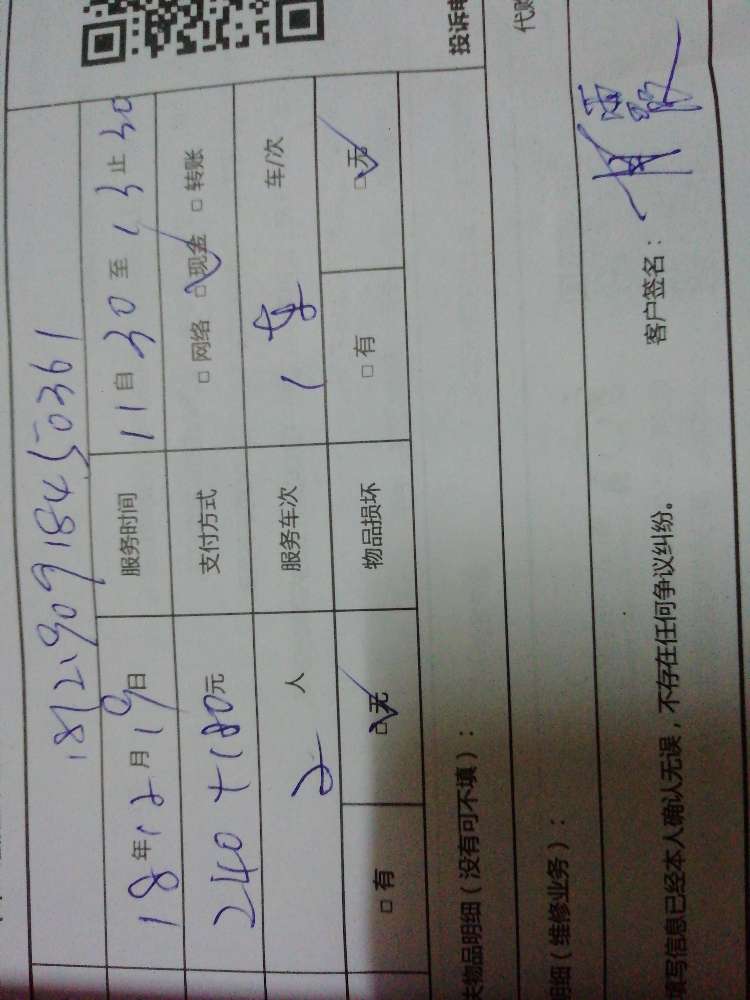 181219091845 0361
18年12月19日 服务时间 11自30至13止30
240+180元 支付方式 □网络 ☑现金 □转账
2人 服务车次 1车 车/次
□有 ☑无 物品损坏 □有 ☑无
投诉
失物品明细（没有可不填）：
代
明细（维修业务）：
填写信息已经本人确认无误，不存在任何争议纠纷。 客户签名：